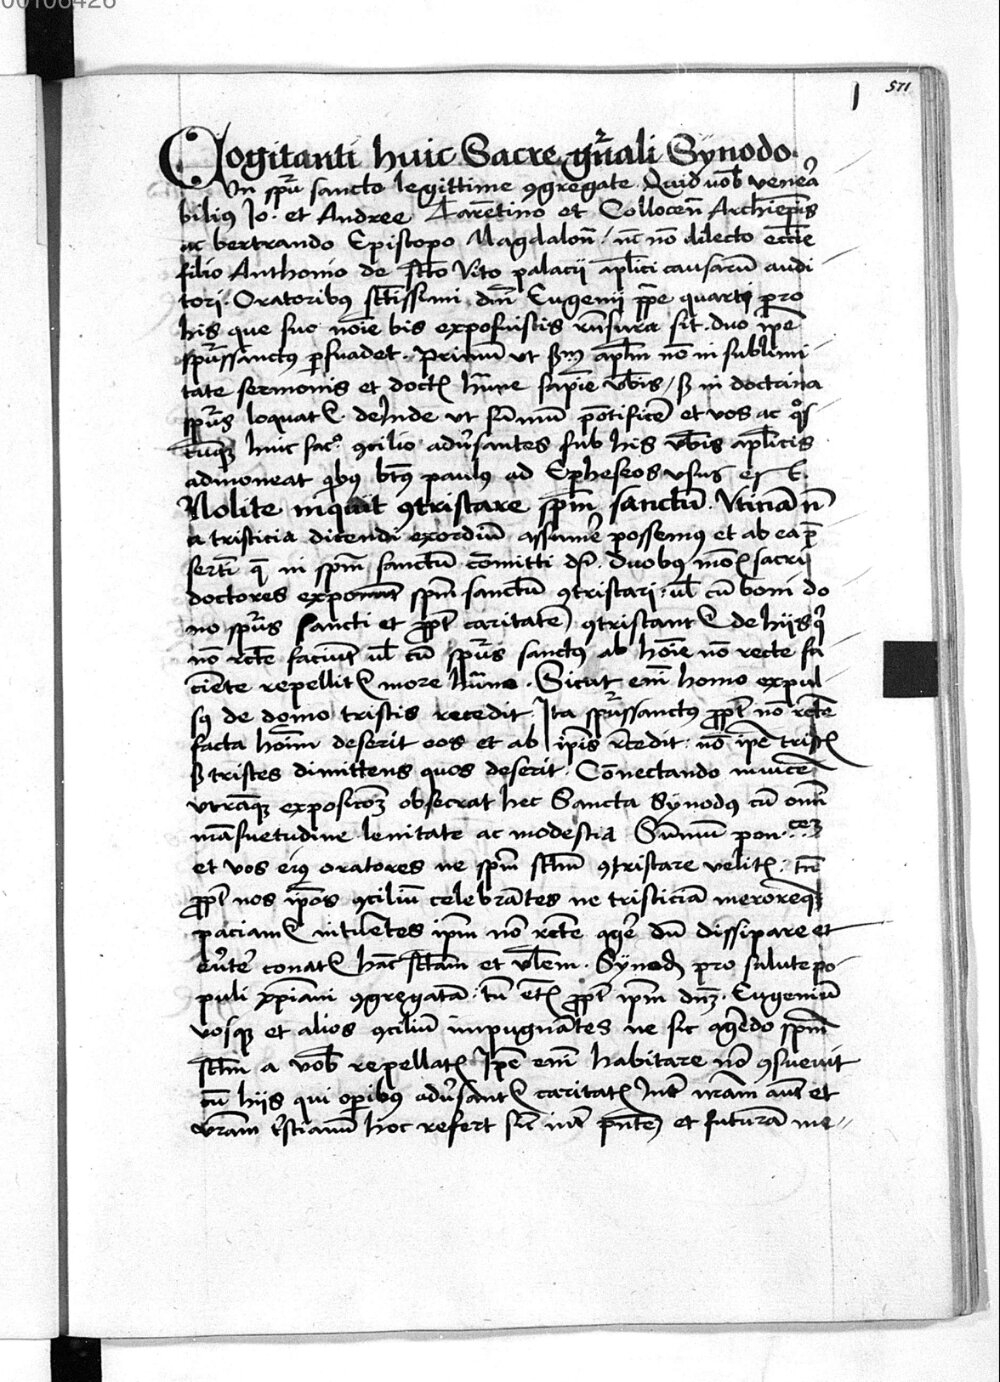 00106426
571
1
Cogitanti huic Sacre gn̄ali Synodo
In spū sancto legittime ꝯgregate Quid uob̄ venera
bilibꝯ Jo. et Andree Tarentino et Collocen̄ Archiep̄is
ac bertrando Episcopo Magdalon̄ / nc̄ nō dilecto eccl̄ie
filio Anthonio de sc̄to Vito palacij apl̄ici causarū audi
tori. Oratoribꝯ sc̄tissimi dn̄i Eugenij pp̄e quarti pro
his que suo noīe bis exposuistis rn̄sura sit. duo ip̄e
spūssanctꝯ p̄suadet. Primū ut scd̄m apl̄m nō in sublimi
tate sermonis et doctꝭ hūane sapīe v̄bis / sꝫ in doctrina
spūs loquat᷑. dehinde ut sūmū pōtificē et vos ac q̊s
cūqꝫ huic sacº ꝯcilio adūsantes sub his v̄bis apl̄icis
admoneat qibꝯ bt̄us paulꝯ ad Epheseos vsus est.
Nolite inquit ꝯtristare spm̄ sanctū. Vtinā n̄
a tristicia dicendi exordiū assumē possemꝯ et ab ea p̄
sertī q̄ in spm̄ sanctū cōmitti dr̄. duobꝯ mōꝭ sacri
doctores exponūt spm̄ sanctū ꝯtristari. ul̄ cū boni do
no spūs sancti et ppt̄ caritatē ꝯtristant᷑ de hijs q̄
nō rcte faciunt ul̄ cū spūs sanctꝯ ab hoīe nō recte fa
ciente repellit᷑ more hūano. Sicut em̄ homo expul
sꝯ de domo tristis recedit Ita spūssanctꝯ ppt̄ nō rcte
facta hoīm deserit eos et ab ip̄is rcedit. nō ip̄e tristꝭ
sꝫ tristes dimittens quos deserit. Cōnectando inuicē
vtrāqꝫ expositōꝫ obsecrat hec Sancta Synodꝯ cū oīni
māsuetudine lenitate ac modestia Sūmū pon..ceꝫ
et vos eiꝯ oratores ne spm̄ sc̄tm̄ ꝯtristare velitꝭ. tū
ppt̄ nos ip̄os ꝯciliū celebrātes ne tristiciā meroreqꝫ
paciam᷑ intuētes ip̄m nō rcte agē dū dissipare et
eūtē conat᷑ hāc sc̄tam et vl̄em Synodū pro salute po
puli xp̄iani ꝯgregatā. tū etꝭ ppt̄ ip̄m dn̄ꝫ Eugeniū
vosqꝫ et alios ꝯciliū impugnātes ne sic agēdo spm̄
sc̄tm a vob̄ repellatꝭ Ip̄e em̄ habitare nō ꝯsueuit
cū hijs qui opibꝯ adūsant᷑ caritatꝭ Int̄ nr̄am aut̄ et
vr̄am t̄sticiam hoc refert sic̄ int̄ pn̄tē et futurā me